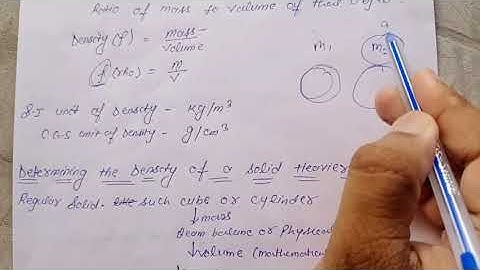 Ratio of mass to volume of their
Density (ρ) = mass
volume
ρ (rho) = m
v
m₁
a
m₂
S.I unit of Density - kg/m³
C.G.S unit of Density - g/cm³
Determining the Density of a Solid Heavier
Regular Solid. such cube or cylinder
↓mass
Beam balance or Physical
↓volume (mathematical